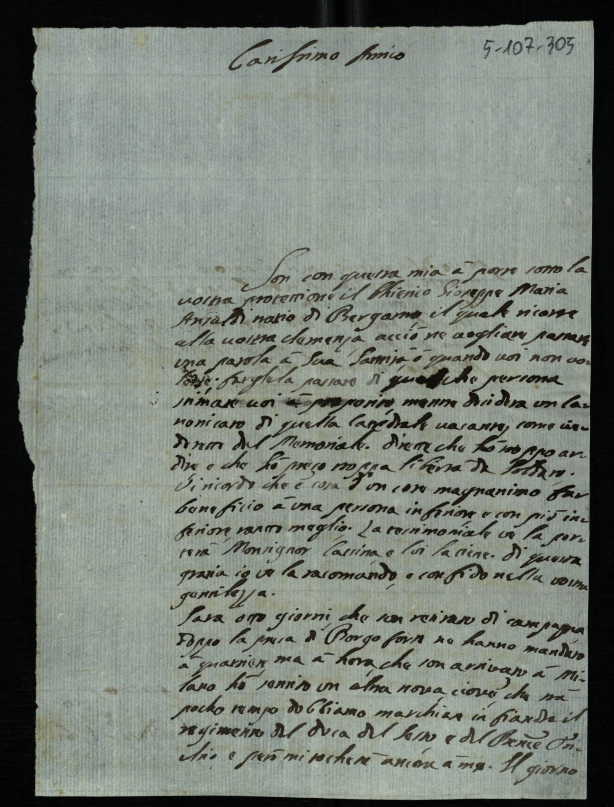 5-107-305
Carissimo Amico
Son con questa mia à porre sotto la
vostra protectione il Chierico Gioseppe Maria
Ansaldi nativo di Bergamo il quale ricorre
alla vostra clemenza acciò ne vogliate passare
una parola à Sua Santità ò quando voi non vo-
leste farglela passare di qualche persona
stimate voi à proposito, mentre desidera un Ca-
nonicato di quella Catedrale vacante, come ve-
drete dal Memoriale. direte che hò troppo ar-
dire e che hò preso troppa libertà da Soldato.
Vi ricordo che è cosa d'un core magnanimo far
beneficio à una persona inferiore e con più in-
feriore tanto meglio. La testimoniale ve la por-
terà Monsignor Cassina e lui la tiene. di questa
gratia io ve la racomando, e confido nella vostra
gentilezza.
Sara otto giorni che son retirato di campagna
doppo la presa di Borgo forte ne hanno mandato
à quartiere ma à hora che son arrivato à Mi-
lano hò sentito un altra nova ciovè che trà
pocho tempo dobbiamo marchiare in fiandra il
regimento del duca del Sesto e del Prence Tri-
ultio e però mi tocherà ancora à me. Il giorno